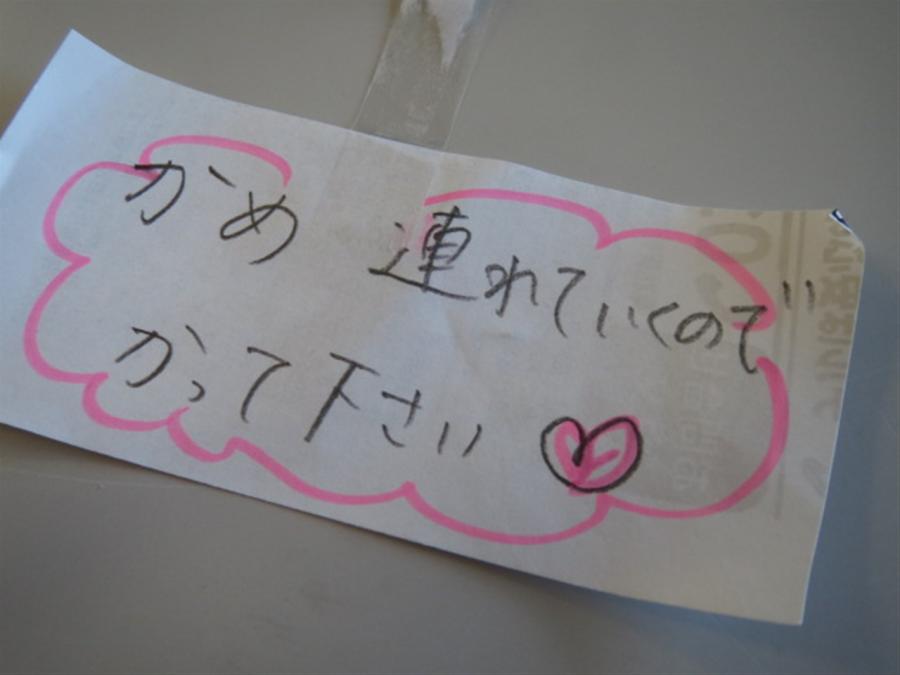 かめ 連れていくので
かって下さい